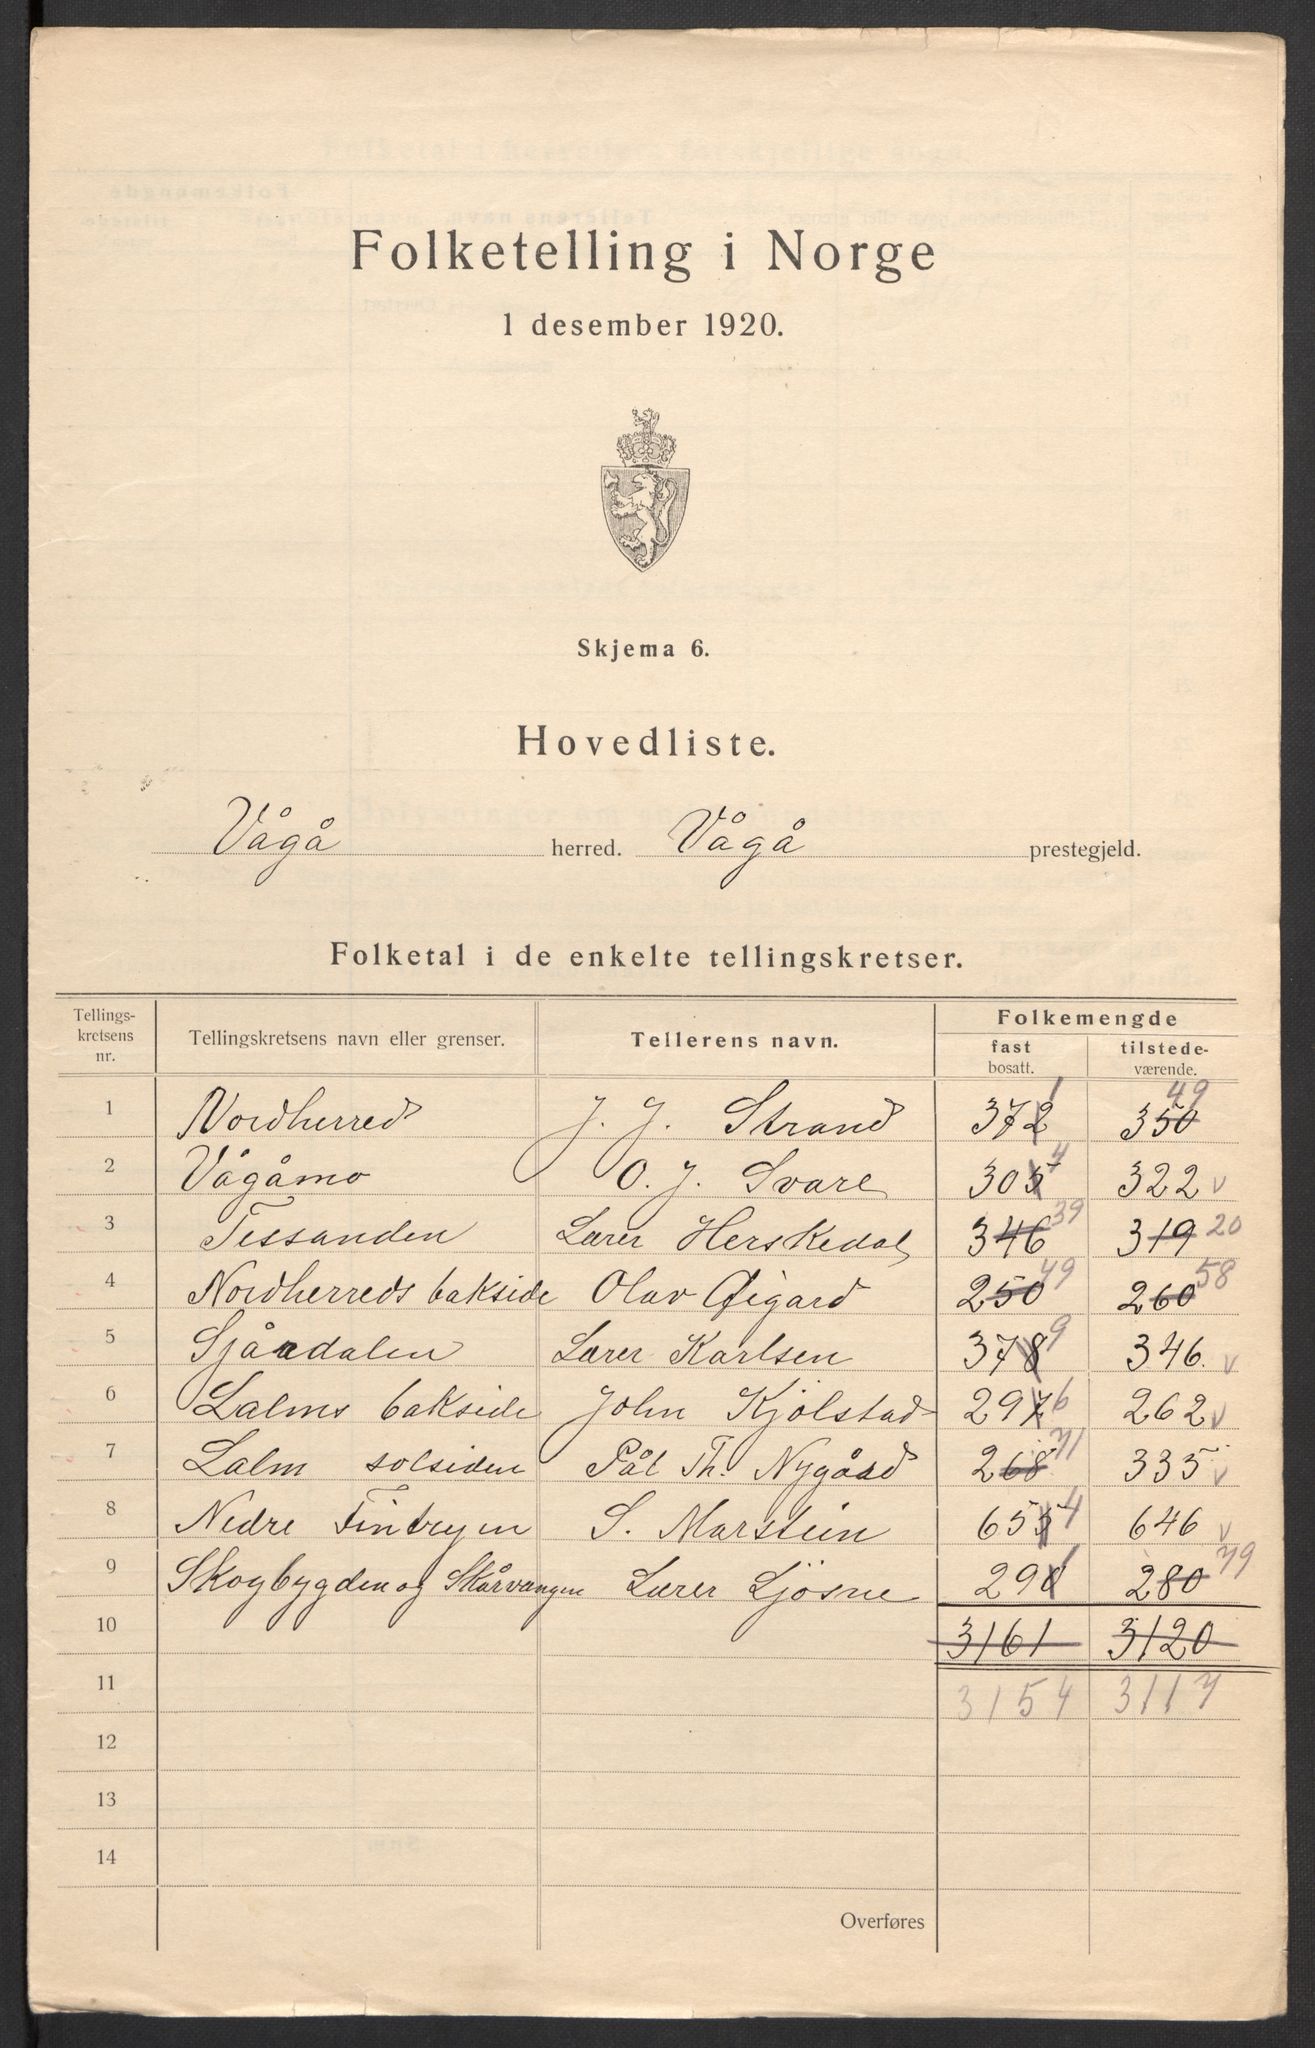 Folketelling i Norge
1 desember 1920.
Skjema 6.
Hovedliste.
Vågå herred. Vågå prestegjeld.
Folketal i de enkelte tellingskretser.
Tellings-kretsens nr. Tellingskretsens navn eller grenser. Tellerens navn. Folkemengde fast bosatt. tilstede-værende.
1 Nordherred J. J. Strand 372 1 350 49
2 Vågåmo O. J. Svare 305 4 322 v
3 Tessanden Lærer Herskedal 346 39 319 20
4 Nordherreds bakside Olav Øigard 250 49 260 58
5 Sjåadalen Lærer Karlsen 378 9 346. v
6 Lalms bakside John Kjölstad 297 6 262 v
7 Lalm solsiden Pål Th. Nygård 268 71 335 v
8 Nedre Findbygen S. Marstein 655 4 646 v
9 Skogbygden og Skårvangen Lærer Ljösne 290 1 280 79
10 3161 3120
11 3154 3117
12
13
14
Overføres